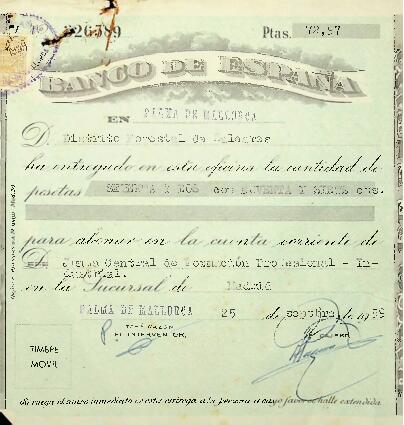 226389 Ptas. 72,97
BANCO DE ESPAÑA
EN PALMA DE MALLORCA
D. Distrito Forestal de Baleares
ha entregado en esta oficina la cantidad de
pesetas SETENTA Y DOS con NOVENTA Y SIETE cts.
para abonar en la cuenta corriente de
D. Junta Central de Formación Profesional - In-
dustrial.
en la Sucursal de Madrid
PALMA DE MALLORCA 25 de septbre 1959
TOMÉ RAZÓN
EL INTERVENTOR, EL CAJERO
TIMBRE
MÓVIL
Se ruega el aviso inmediato de esta entrega a la persona a cuyo favor se halle extendida.